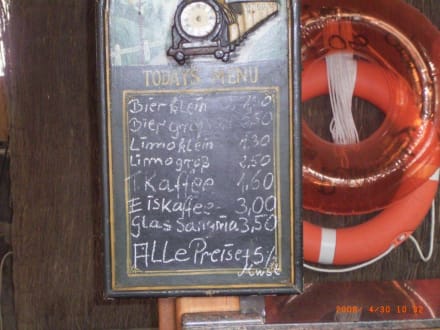 TODAY'S MENU
Bier klein 1,80
Bier groß 2,50
Limo klein 1,30
Limo groß 2,50
T. Kaffee 1,60
Eiskaffee 3,00
Glas Sangria 3,50
ALLe Preise + 5%
Mwst
2008/ 4/30 10:32